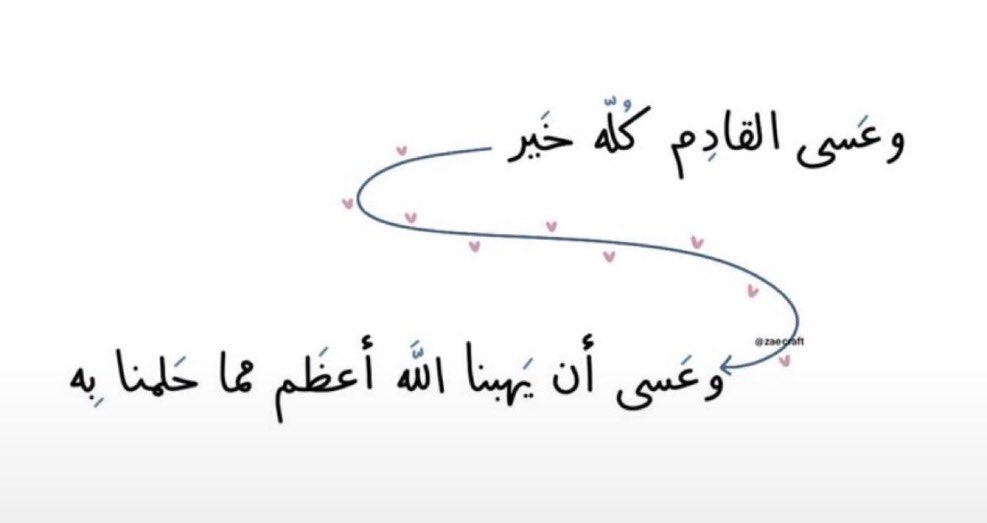 وعَسى القادِم كُلّه خَير
@zaecraft
وعَسى أن يَهبنا اللَّه أعظَم مما حَلمنا بِه